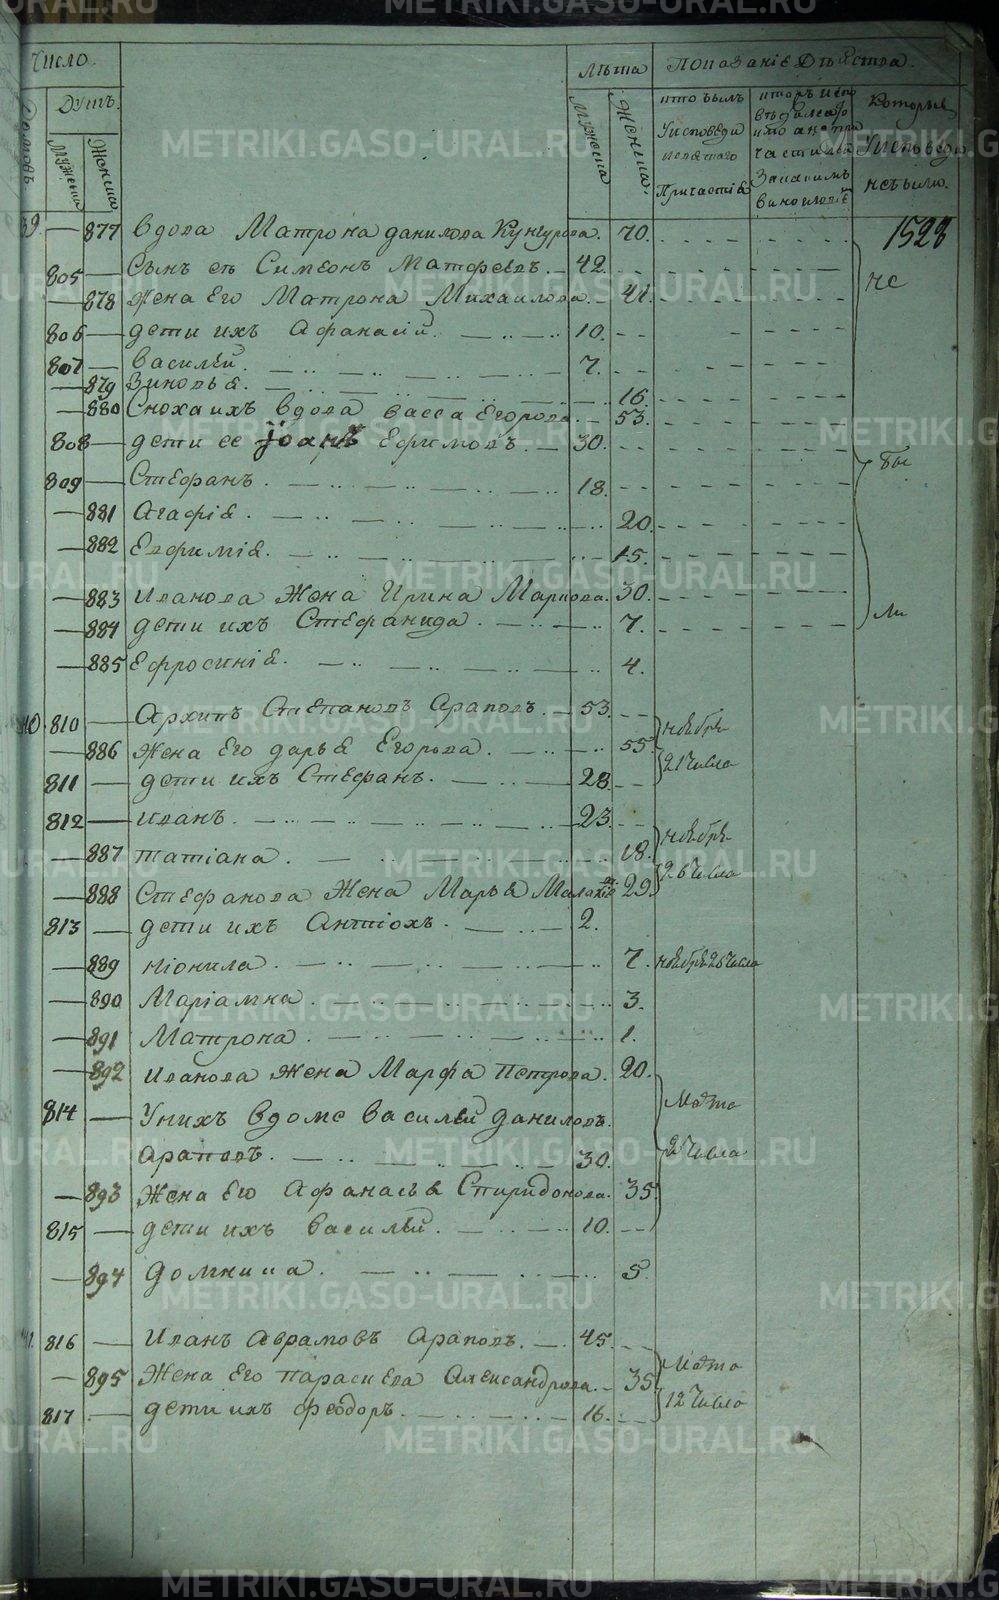 METRIKI.GASO-URAL.RU
Число
Домовъ
Душъ.
Мужеска
Женска
Лѣта
Мужеска
Женска.
Показанїе Дѣйства.
кто былъ У исповеди и святаго Причастїя
Которые У исповеди не были.
1528
39. — 877 вдова Матрона данилова Кунгурова. 70.
805 — Сынъ еѣ Симеонъ Матфеевъ. 42.
— 878 Жена Его Матрона Михаилова. 41.
806 — дети ихъ Афанасїй. 10.
807 — василей. 7.
— 879 Зиновья. 16.
— 880 Сноха ихъ вдова васса Егорова. 53.
808 — дети ее Іоанъ Ефимовъ. 30.
809 — Стефанъ. 18.
— 881 Агафїя. 20.
— 882 Евфимїя. 15.
— 883 Иванова Жена Ирина Маркова. 30.
— 884 дети ихъ Стефанида. 7.
— 885 Ефросинїя. 4.
не
бы
ли
40. 810 — Архипъ Степановъ Араповъ. 53.
— 886 Жена Его дарья Егорова. 55.
ноября 21 Числа
811 — дети ихъ Стефанъ. 28.
812 — иванъ. 23.
— 887 татїана. 18.
— 888 Стефанова Жена Марья 29.
ноября 26 Числа
813 — дети ихъ Антїохъ. 2.
— 889 нїонила. 7. ноября 26 Числа
— 890 Марїамна. 3.
— 891 Матрона. 1.
— 892 Иванова Жена Марфа Петрова. 20.
814 — У нихъ вдоме василей даниловъ
араповъ. 30.
— 893 Жена Его Афанасья Спиридонова. 35.
815 — дети ихъ василей. 10.
Марта 2 Числа
— 894 домника. 5.
41. 816 — Иванъ аврамовъ араповъ. 45.
— 895 Жена Его Параскева Александрова. 35.
817 — дети ихъ феодоръ. 16.
Марта 12 Числа